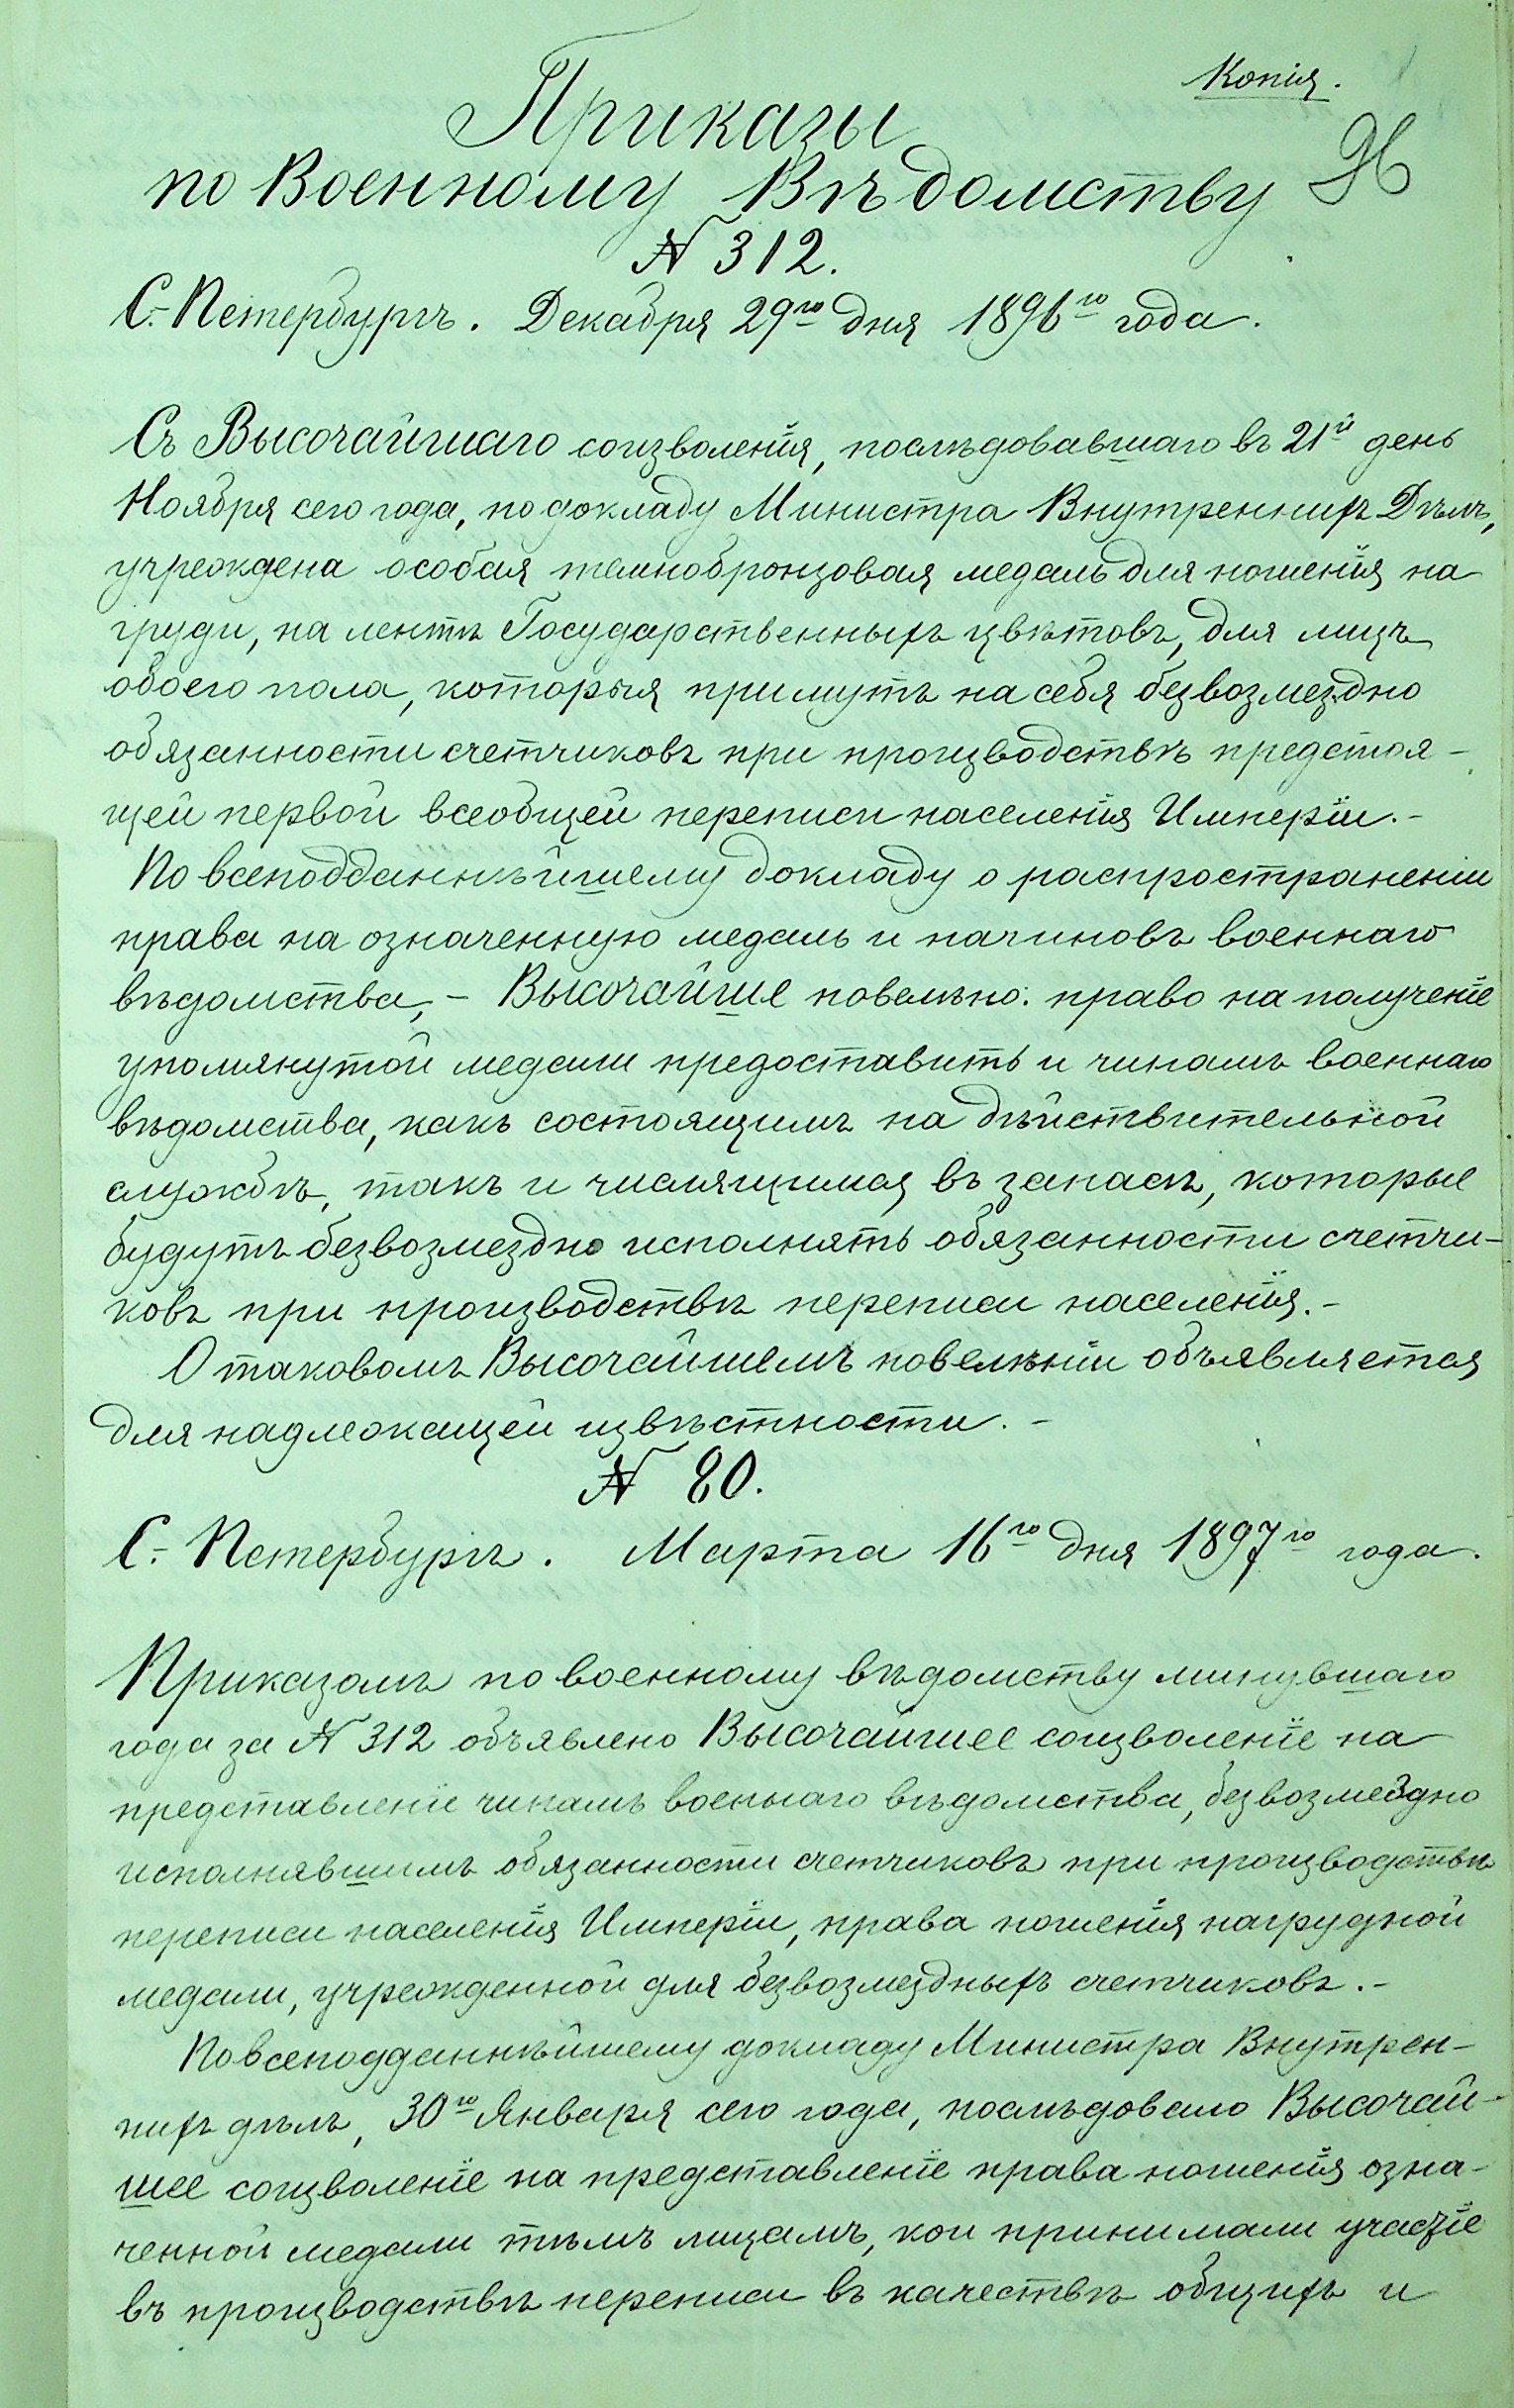 Копія.
Приказы
по Военному Вѣдомству
№ 312.
С.-Петербургъ. Декабря 29го дня 1896го года.
Съ Высочайшаго соизволенія, послѣдовавшаго въ 21й день
Ноября сего года, по докладу Министра Внутреннихъ Дѣлъ,
учреждена особая темнобронзовая медаль для ношенія на
груди, на лентѣ Государственныхъ цвѣтовъ, для лицъ
обоего пола, которыя примутъ на себя безвозмездно
обязанности счетчиковъ при производствѣ предстоя-
щей первой всеобщей переписи населенія Имперіи.-
По всеподданнѣйшему докладу о распространеніи
права на означенную медаль и на чиновъ военнаго
вѣдомства,- Высочайше повелѣно: право на полученіе
упомянутой медали предоставить и чинамъ военнаго
вѣдомства, какъ состоящимъ на дѣйствительной
службѣ, такъ и числящимся въ запасѣ, которые
будутъ безвозмездно исполнять обязанности счетчи-
ковъ при производствѣ переписи населенія.-
О таковомъ Высочайшемъ повелѣніи объявляется
для надлежащей извѣстности.-
№ 80.
С.-Петербургъ. Марта 16го дня 1897го года.
Приказомъ по военному вѣдомству минувшаго
года за № 312 объявлено Высочайшее соизволеніе на
представленіе чинамъ военнаго вѣдомства, безвозмездно
исполнявшимъ обязанности счетчиковъ при производствѣ
переписи населенія Имперіи, права ношенія нагрудной
медали, учрежденной для безвозмездныхъ счетчиковъ.-
По всеподданнѣйшему докладу Министра Внутрен-
нихъ дѣлъ, 30го Января сего года, послѣдовало Высочай-
шее соизволеніе на представленіе права ношенія озна-
ченной медали тѣмъ лицамъ, кои принимали участіе
въ производствѣ переписи въ качествѣ общихъ и